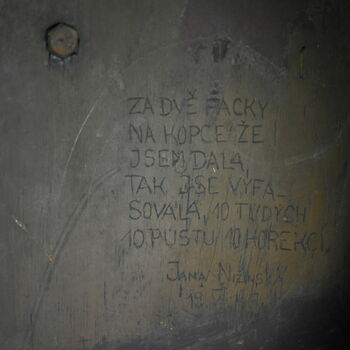 ZA DVĚ FACKY
NA KOPCE ŽE
JSEM DALA,
TAK JSE VYFA-
SOVALA, 10 TVDÝCH
10 PUSTU 10 HOREKCÍ.
JANA
19.